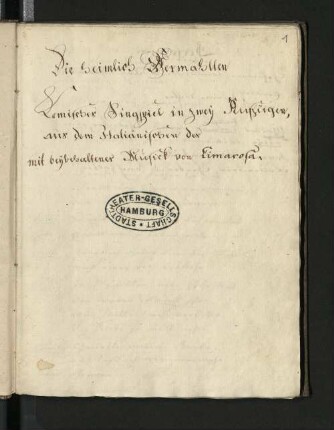 1
Die heimlich Vermählten
Komisches Singspiel in zwey Aufzügen,
aus dem Italiänischen des
mit beybehaltener Musick von Cimarosa.
STADTTHEATER-GESELLSCHAFT
HAMBURG